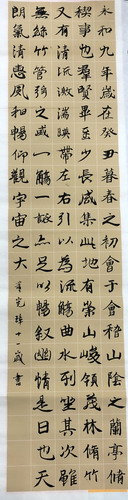 永和九年歲在癸丑暮春之初會于會稽山陰之蘭亭脩
稧事也羣賢畢至少長咸集此地有崇山峻領茂林脩竹
又有清流激湍暎帶左右引以為流觴曲水列坐其次雖
無絲竹管弦之盛一觴一詠亦足以暢敘幽情是日也天
朗氣清惠風和暢仰觀宇宙之大
十一歲書